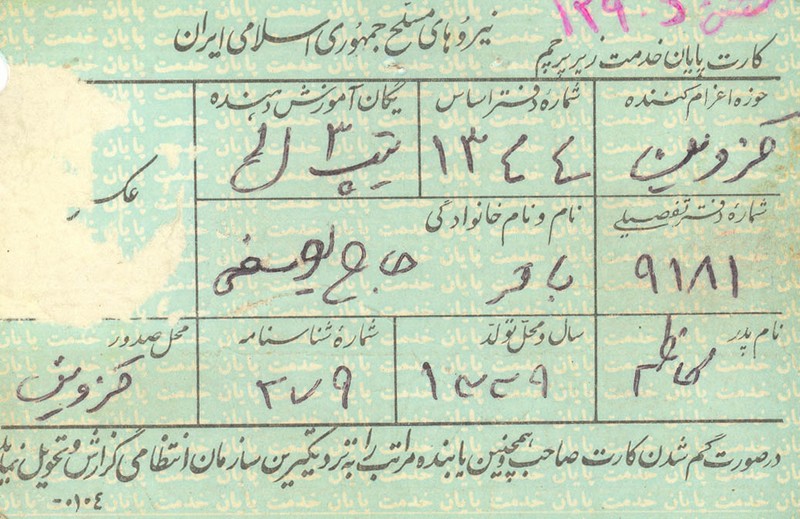 نیروهای مسلح جمهوری اسلامی ایران
کارت پایان خدمت زیر پرچم
حوزه اعزام کننده
قزوین
شمارهٔ دفتر اساس
۱۳۴۴
یگان آموزش دهنده
تیپ ۳
عکس
شمارهٔ دفتر تفصیلی
۹۱۸۱
نام و نام خانوادگی
باقر حاج یوسفی
نام پدر
کاظم
سال و محل تولد
۱۳۳۹
شمارهٔ شناسنامه
۳۷۹
محل صدور
قزوین
در صورت گم شدن کارت صاحب و همچنین یابنده مراتب را به نزدیکترین سازمان انتظامی گزارش و تحویل نماید
۰۰۱۰۴